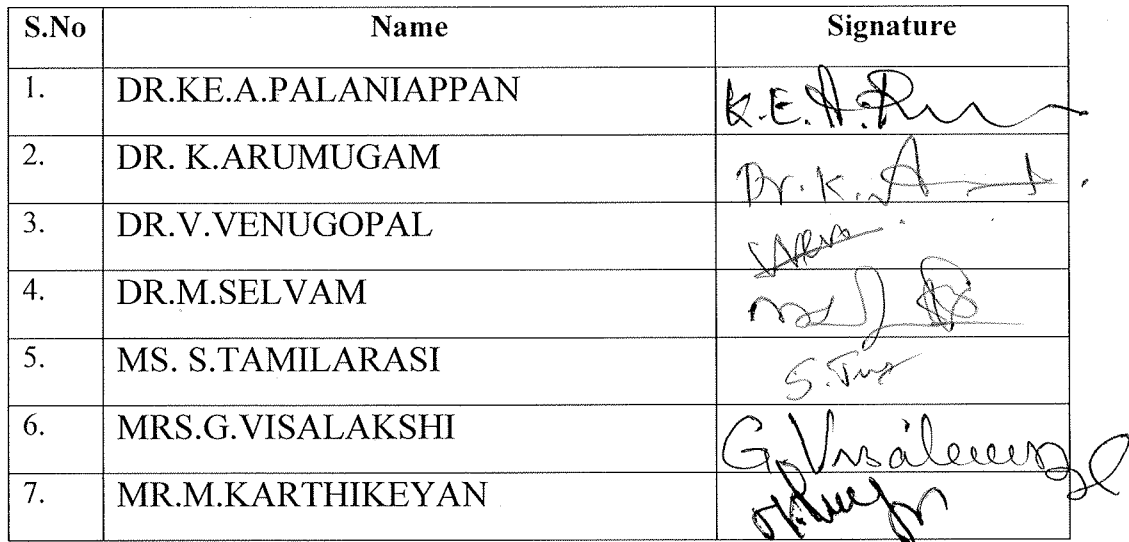 S.No Name Signature
1. DR.KE.A.PALANIAPPAN K.E.A.
2. DR. K.ARUMUGAM Dr.K.A
3. DR.V.VENUGOPAL
4. DR.M.SELVAM
5. MS. S.TAMILARASI S.
6. MRS.G.VISALAKSHI G.
7. MR.M.KARTHIKEYAN